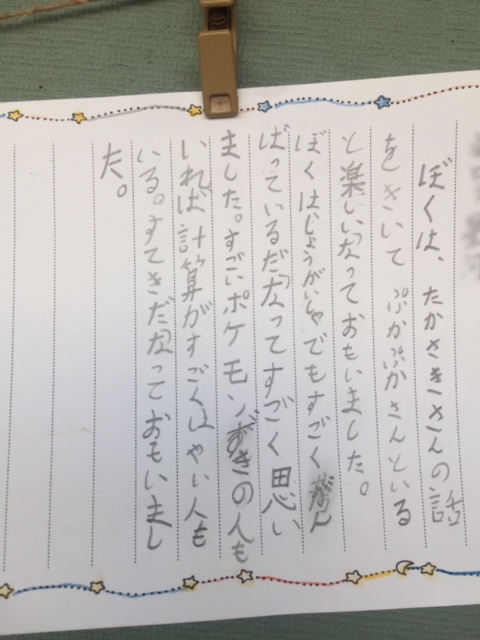 ぼくは、たかさきさんの話
をきいてぷかぷかさんといる
と楽しいなっておもいました。
ぼくはしょうがいしゃでもすごくがん
ばっているだなってすごく思い
ました。すごいポケモンずきの人も
いれば計算がすごくはやい人も
いる。すてきだなっておもいまし
た。